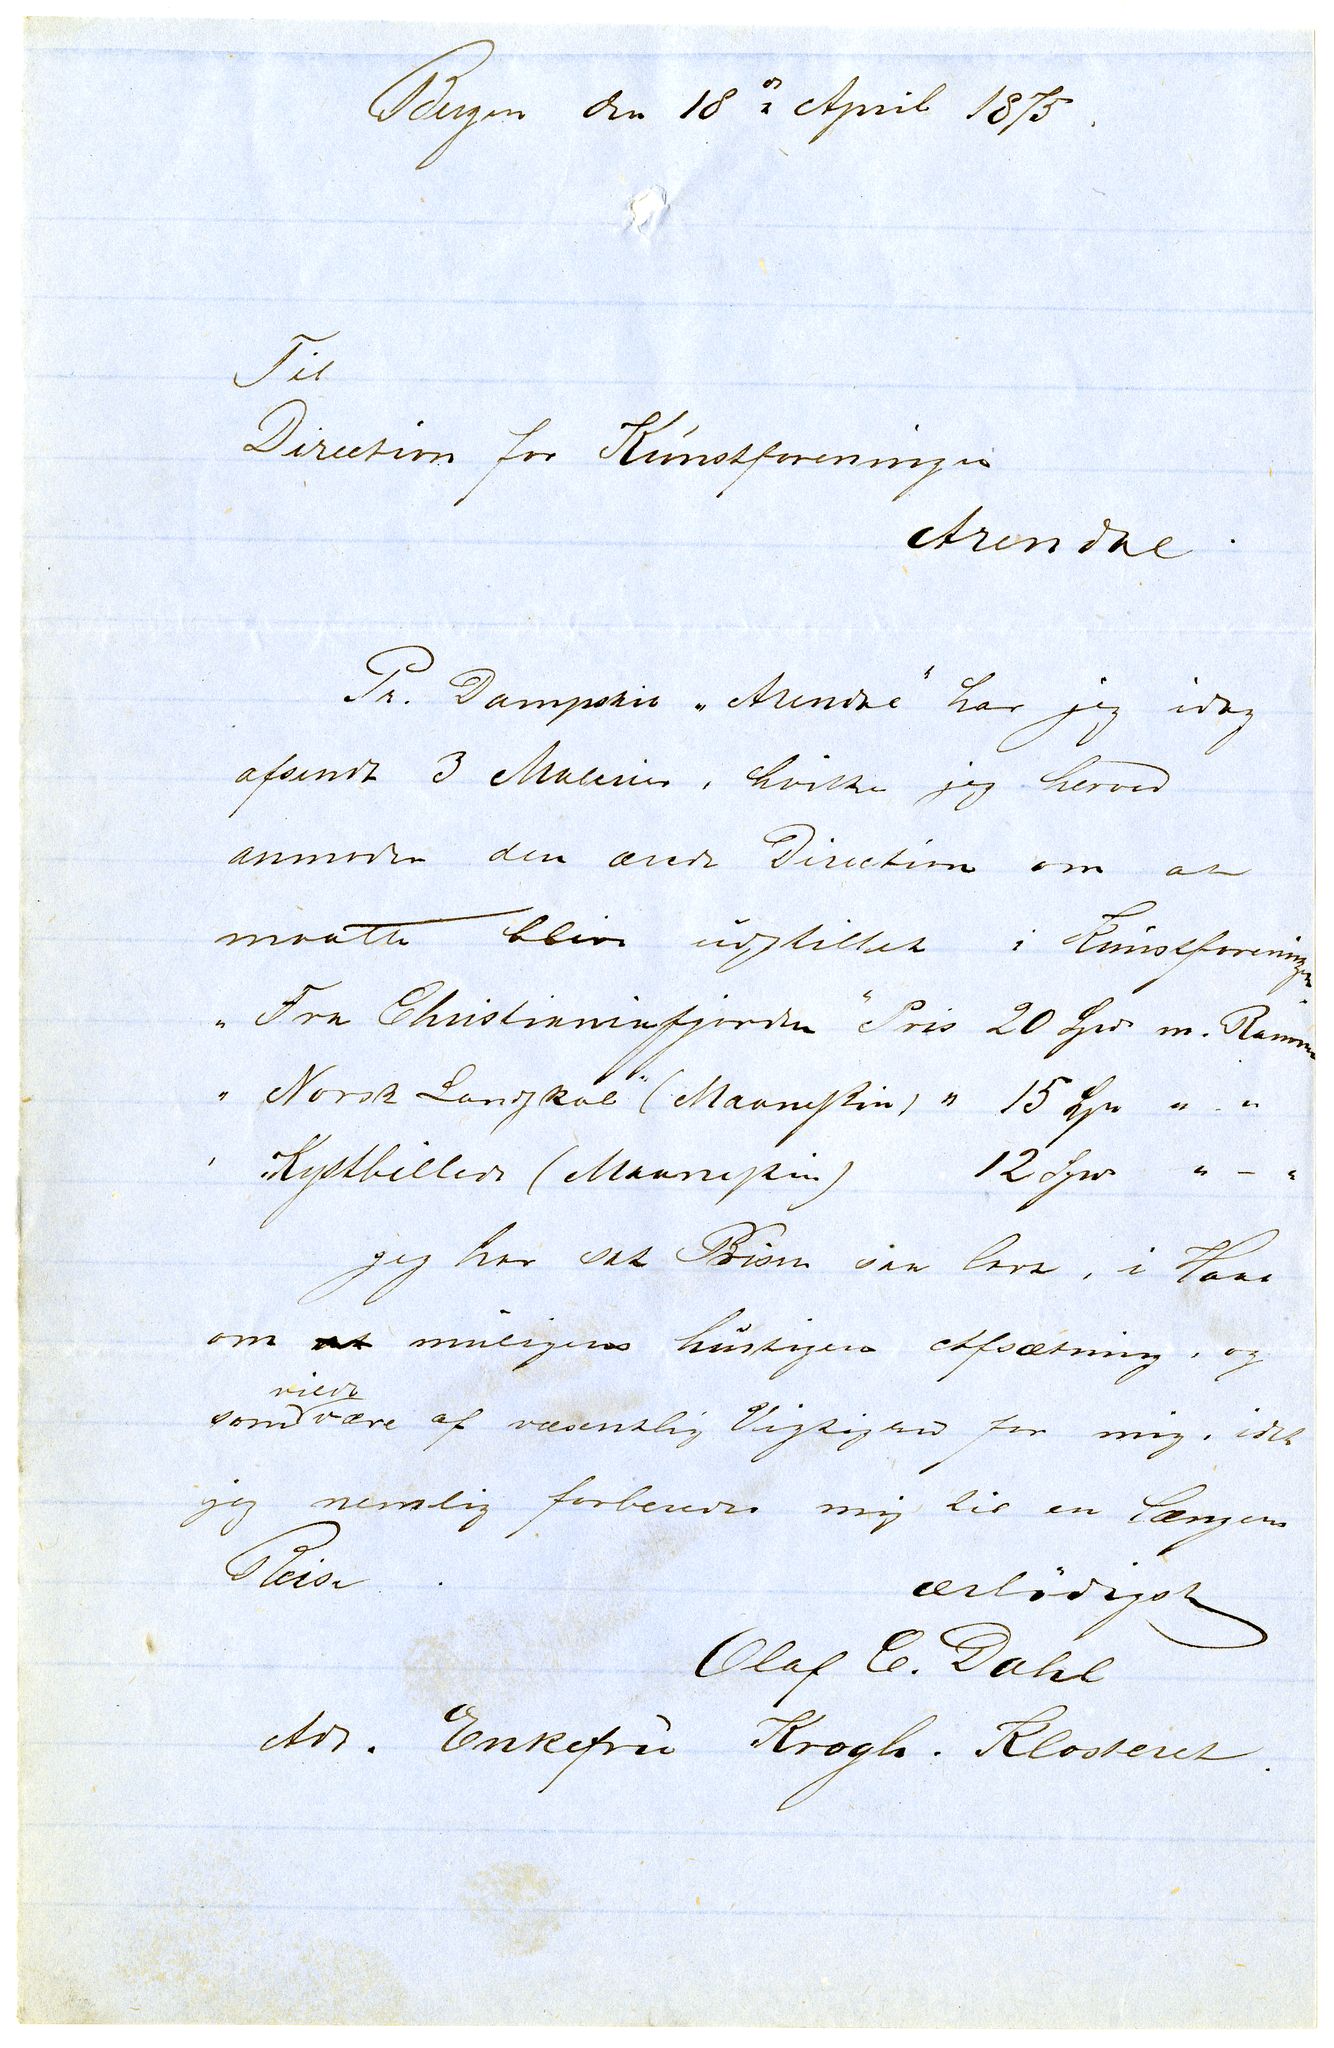 Bergen den 18de April 1875.
Til
Direction for Kunstforeningen
Arendal.
Pr. Dampskib „Arendal" har jeg idag
afsendt 3 Malerier, hvilke jeg herved
anmoder den ærede Direction om at
maatte blive udstillet i Kunstforeningen.
„Fra Christianiafjorden" Pris 20 Spd m. Ramme
„Norsk Landskab" (Maaneskin) " 15 Spd " - "
„Kystbillede (Maaneskin) 12 Spd " - "
jeg har sat Prisen saa lavt, i Haab
om at muligens hurtigere Afsætning, og
som vilde være af væsentlig Vigtighed for mig, idet
jeg nemlig forbereder mig til en længere
Reise.
ærbødigst
Olaf C. Dahl
Adr. Enkefru Krogh. Klosteret.